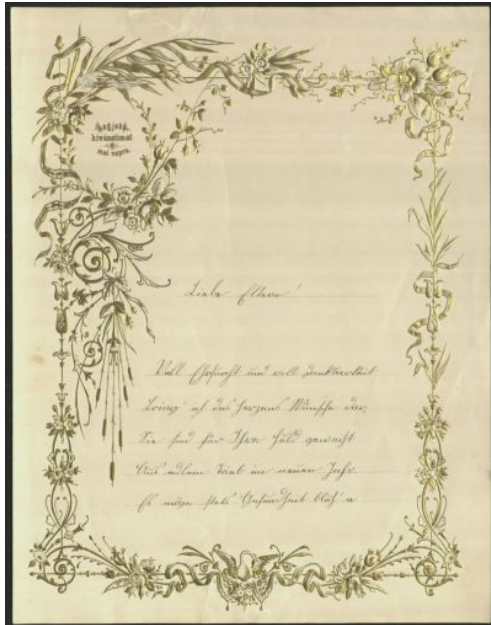 kivánatimat
mai napra.
Liebe Eltern!
Voll Ehrfurcht und voll dankbarkeit
Bring' ich des Herzens Wünsche dar,
Sie sind für Ihre Huld geweiht
Aus edlem Trieb im neuen Jahr
Es möge stets Gesundheit blüh'n